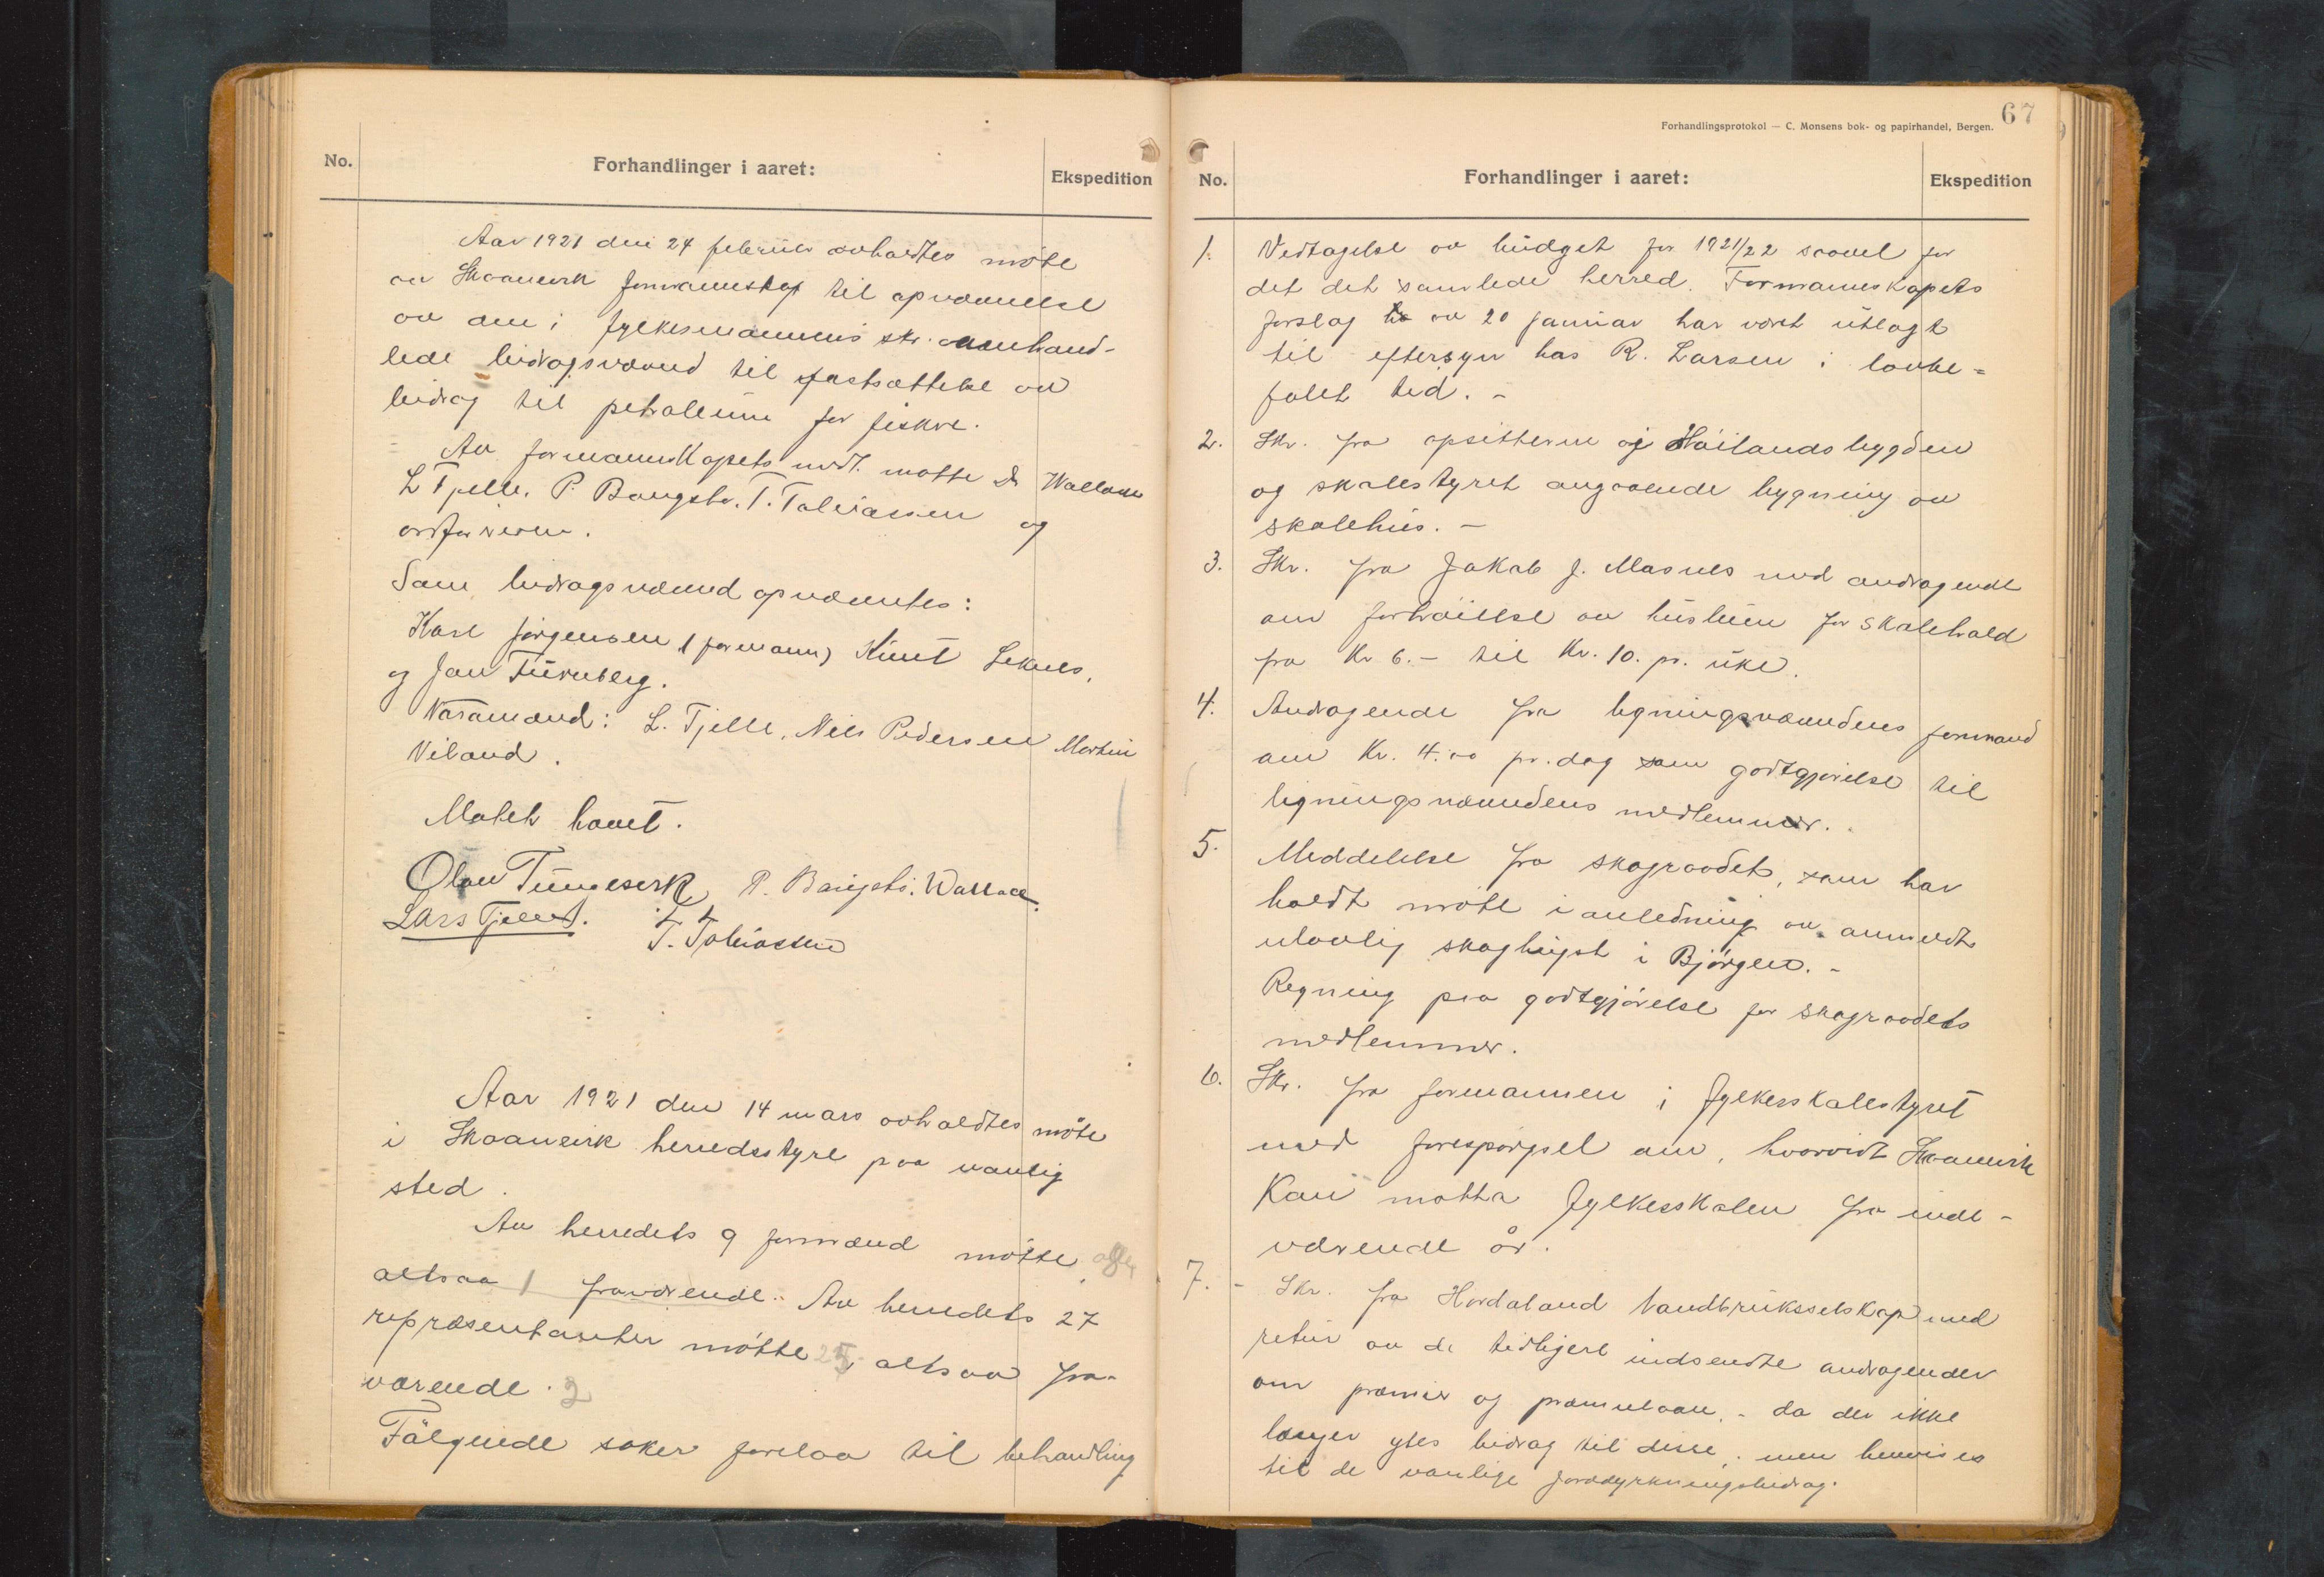 No.
Forhandlinger i aaret:
Ekspedition
Aar 1921 den 24 februar avholdtes møte
av Skaanevik formannskap til opnævnelse
av den i fylkesmannens skr. omhand-
lede bidragsnævnd til fastsættelse av
bidrag til petroleum for fiskere.
Av formannskapets medl. møtte Dr Wallace
L Tjelle, P. Bangstø. T. Tobiassen og
ordføreren.
Som bidragsnævnd opnævntes:
Karl Jørgensen (formann) Knut Seknes,
og Jan Turnberg.
Varamænd: L. Tjelle, Nils Pedersen Martin
Viland.
Møtet hævet.
Olav Tungesvik P. Bangstø. Wallace.
Lars Tjelle. T. Tobiassen
Aar 1921 den 14 mars avholdtes møte
i Skaanevik herredsstyre paa vanlig
sted.
Av herredets 9 formænd møtte alle
altsaa 1 fraværende. Av herredets 27
repræsentanter møtte 25 altsaa fra-
værende. 2
Følgende saker forelaa til behandling
67
Forhandlingsprotokol — C. Monsens bok- og papirhandel, Bergen.
No.
Forhandlinger i aaret:
Ekspedition
1. Vedtagelse av budget for 1921/22 saavel for
det det samlede herred. Formannskapets
forslag av 20 januar har været utlagt
til eftersyn hos R. Larsen i lovbe-
falet tid. -
2. Skr. fra opsitterne i Høilandsbygden
og skolestyret angaaende bygning av
skolehus. -
3. Skr. fra Jakob J. Masnes med andragende
om forhøielse av husleien for skolehold
fra Kr 6.- til Kr. 10. pr. uke.
4. Andragende fra ligningsnævndens formand
om Kr. 4.00 pr. dag som godtgjørelse til
ligningsnævndens medlemmer.
5. Meddelelse fra skograadet, som har
holdt møte i anledning av anmeldt
ulovlig skoghugst i Bjørgen. -
Regning paa godtgjørelse for skograadets
medlemmer.
6. Skr. fra formannen i fylkesskolestyret
med forespørgsel om, hvorvidt Skaanevik
kan motta fylkesskolen fra inde-
værende år.
7. - Skr. fra Hordaland landbruksselskap med
retur av de tidligere indsendte andragender
om præmier og præmielaan, - da der ikke
længer ytes bidrag til disse, men henvises
til de vanlige jorddyrkningsbidrag.